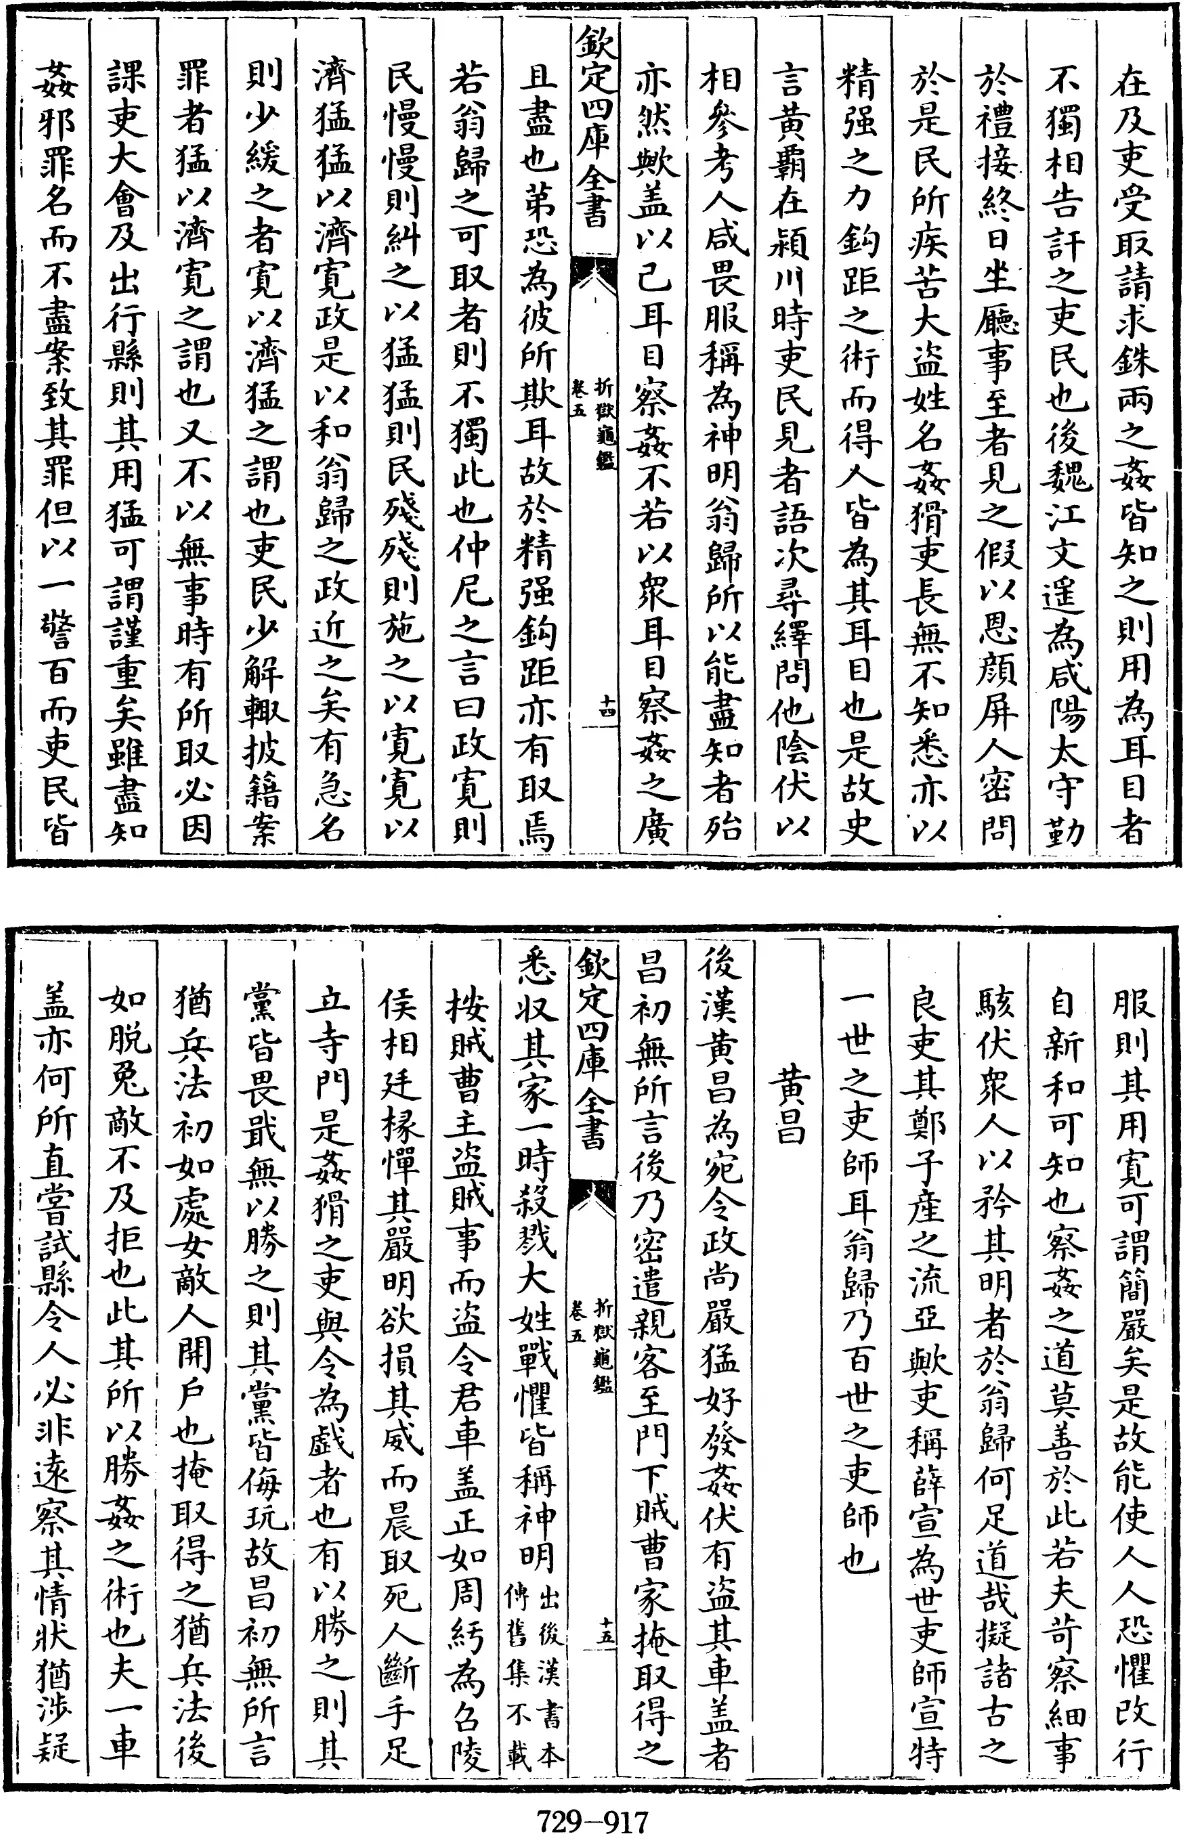 在及吏受取請求銖兩之姦皆知之則用為耳目者
不獨相告訐之吏民也後魏江文遥為咸陽太守勤
於禮接終日坐廳事至者見之假以恩顔屏人密問
於是民所疾苦大盗姓名姦猾吏長無不知悉亦以
精强之力鈎距之術而得人皆為其耳目也是故史
言黄霸在潁川時吏民見者語次尋繹問他陰伏以
相參考人咸畏服稱為神明翁歸所以能盡知者殆
亦然歟盖以己耳目察姦不若以衆耳目察姦之廣
欽定四庫全書
折獄龜鑑
卷五
十四
且盡也第恐為彼所欺耳故於精强鈎距亦有取焉
若翁歸之可取者則不獨此也仲尼之言曰政寛則
民慢慢則糾之以猛猛則民殘殘則施之以寛寛以
濟猛猛以濟寛政是以和翁歸之政近之矣有急名
則少緩之者寛以濟猛之謂也吏民少解輙披籍案
罪者猛以濟寛之謂也又不以無事時有所取必因
課吏大會及出行縣則其用猛可謂謹重矣雖盡知
姦邪罪名而不盡案致其罪但以一警百而吏民皆
服則其用寛可謂簡嚴矣是故能使人人恐懼改行
自新和可知也察姦之道莫善於此若夫苛察細事
駭伏衆人以矜其明者於翁歸何足道哉擬諸古之
良吏其鄭子產之流亞歟吏稱薛宣為世吏師宣特
一世之吏師耳翁歸乃百世之吏師也
黄昌
後漢黄昌為宛令政尚嚴猛好發姦伏有盗其車盖者
昌初無所言後乃密遣親客至門下賊曹家掩取得之
欽定四庫全書
折獄龜鑑
卷五
十五
悉収其家一時殺戮大姓戰懼皆稱神明出後漢書本傳舊集不載
按賊曹主盗賊事而盗令君車盖正如周紆為召陵
侯相廷掾憚其嚴明欲損其威而晨取死人斷手足
立寺門是姦猾之吏與令為戲者也有以勝之則其
黨皆畏戢無以勝之則其黨皆侮玩故昌初無所言
猶兵法初如處女敵人開戶也掩取得之猶兵法後
如脱兎敵不及拒也此其所以勝姦之術也夫一車
盖亦何所直嘗試縣令人必非遠察其情狀猶涉疑
729-917